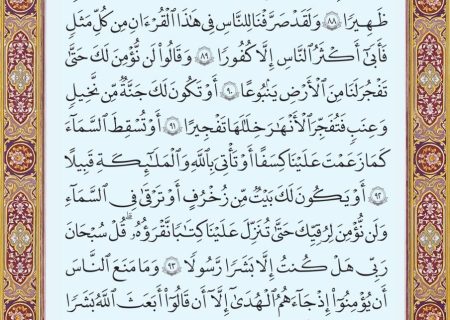 ظَهِيرًا ٨٨ وَلَقَدْ صَرَّفْنَا لِلنَّاسِ فِي هَٰذَا ٱلْقُرْءَانِ مِن كُلِّ مَثَلٍ
فَأَبَىٰٓ أَكْثَرُ ٱلنَّاسِ إِلَّا كُفُورًا ٨٩ وَقَالُوا۟ لَن نُّؤْمِنَ لَكَ حَتَّىٰ
تَفْجُرَ لَنَا مِنَ ٱلْأَرْضِ يَنۢبُوعًا ٩٠ أَوْ تَكُونَ لَكَ جَنَّةٌ مِّن نَّخِيلٍ
وَعِنَبٍ فَتُفَجِّرَ ٱلْأَنْهَٰرَ خِلَٰلَهَا تَفْجِيرًا ٩١ أَوْ تُسْقِطَ ٱلسَّمَآءَ
كَمَا زَعَمْتَ عَلَيْنَا كِسَفًا أَوْ تَأْتِيَ بِٱللَّهِ وَٱلْمَلَٰٓئِكَةِ قَبِيلًا
٩٢ أَوْ يَكُونَ لَكَ بَيْتٌ مِّن زُخْرُفٍ أَوْ تَرْقَىٰ فِي ٱلسَّمَآءِ
وَلَن نُّؤْمِنَ لِرُقِيِّكَ حَتَّىٰ تُنَزِّلَ عَلَيْنَا كِتَٰبًا نَّقْرَؤُهُۥ ۗ قُلْ سُبْحَانَ
رَبِّي هَلْ كُنتُ إِلَّا بَشَرًا رَّسُولًا ٩٣ وَمَا مَنَعَ ٱلنَّاسَ
أَن يُؤْمِنُوٓا۟ إِذْ جَآءَهُمُ ٱلْهُدَىٰٓ إِلَّآ أَن قَالُوٓا۟ أَبَعَثَ ٱللَّهُ بَشَرًا